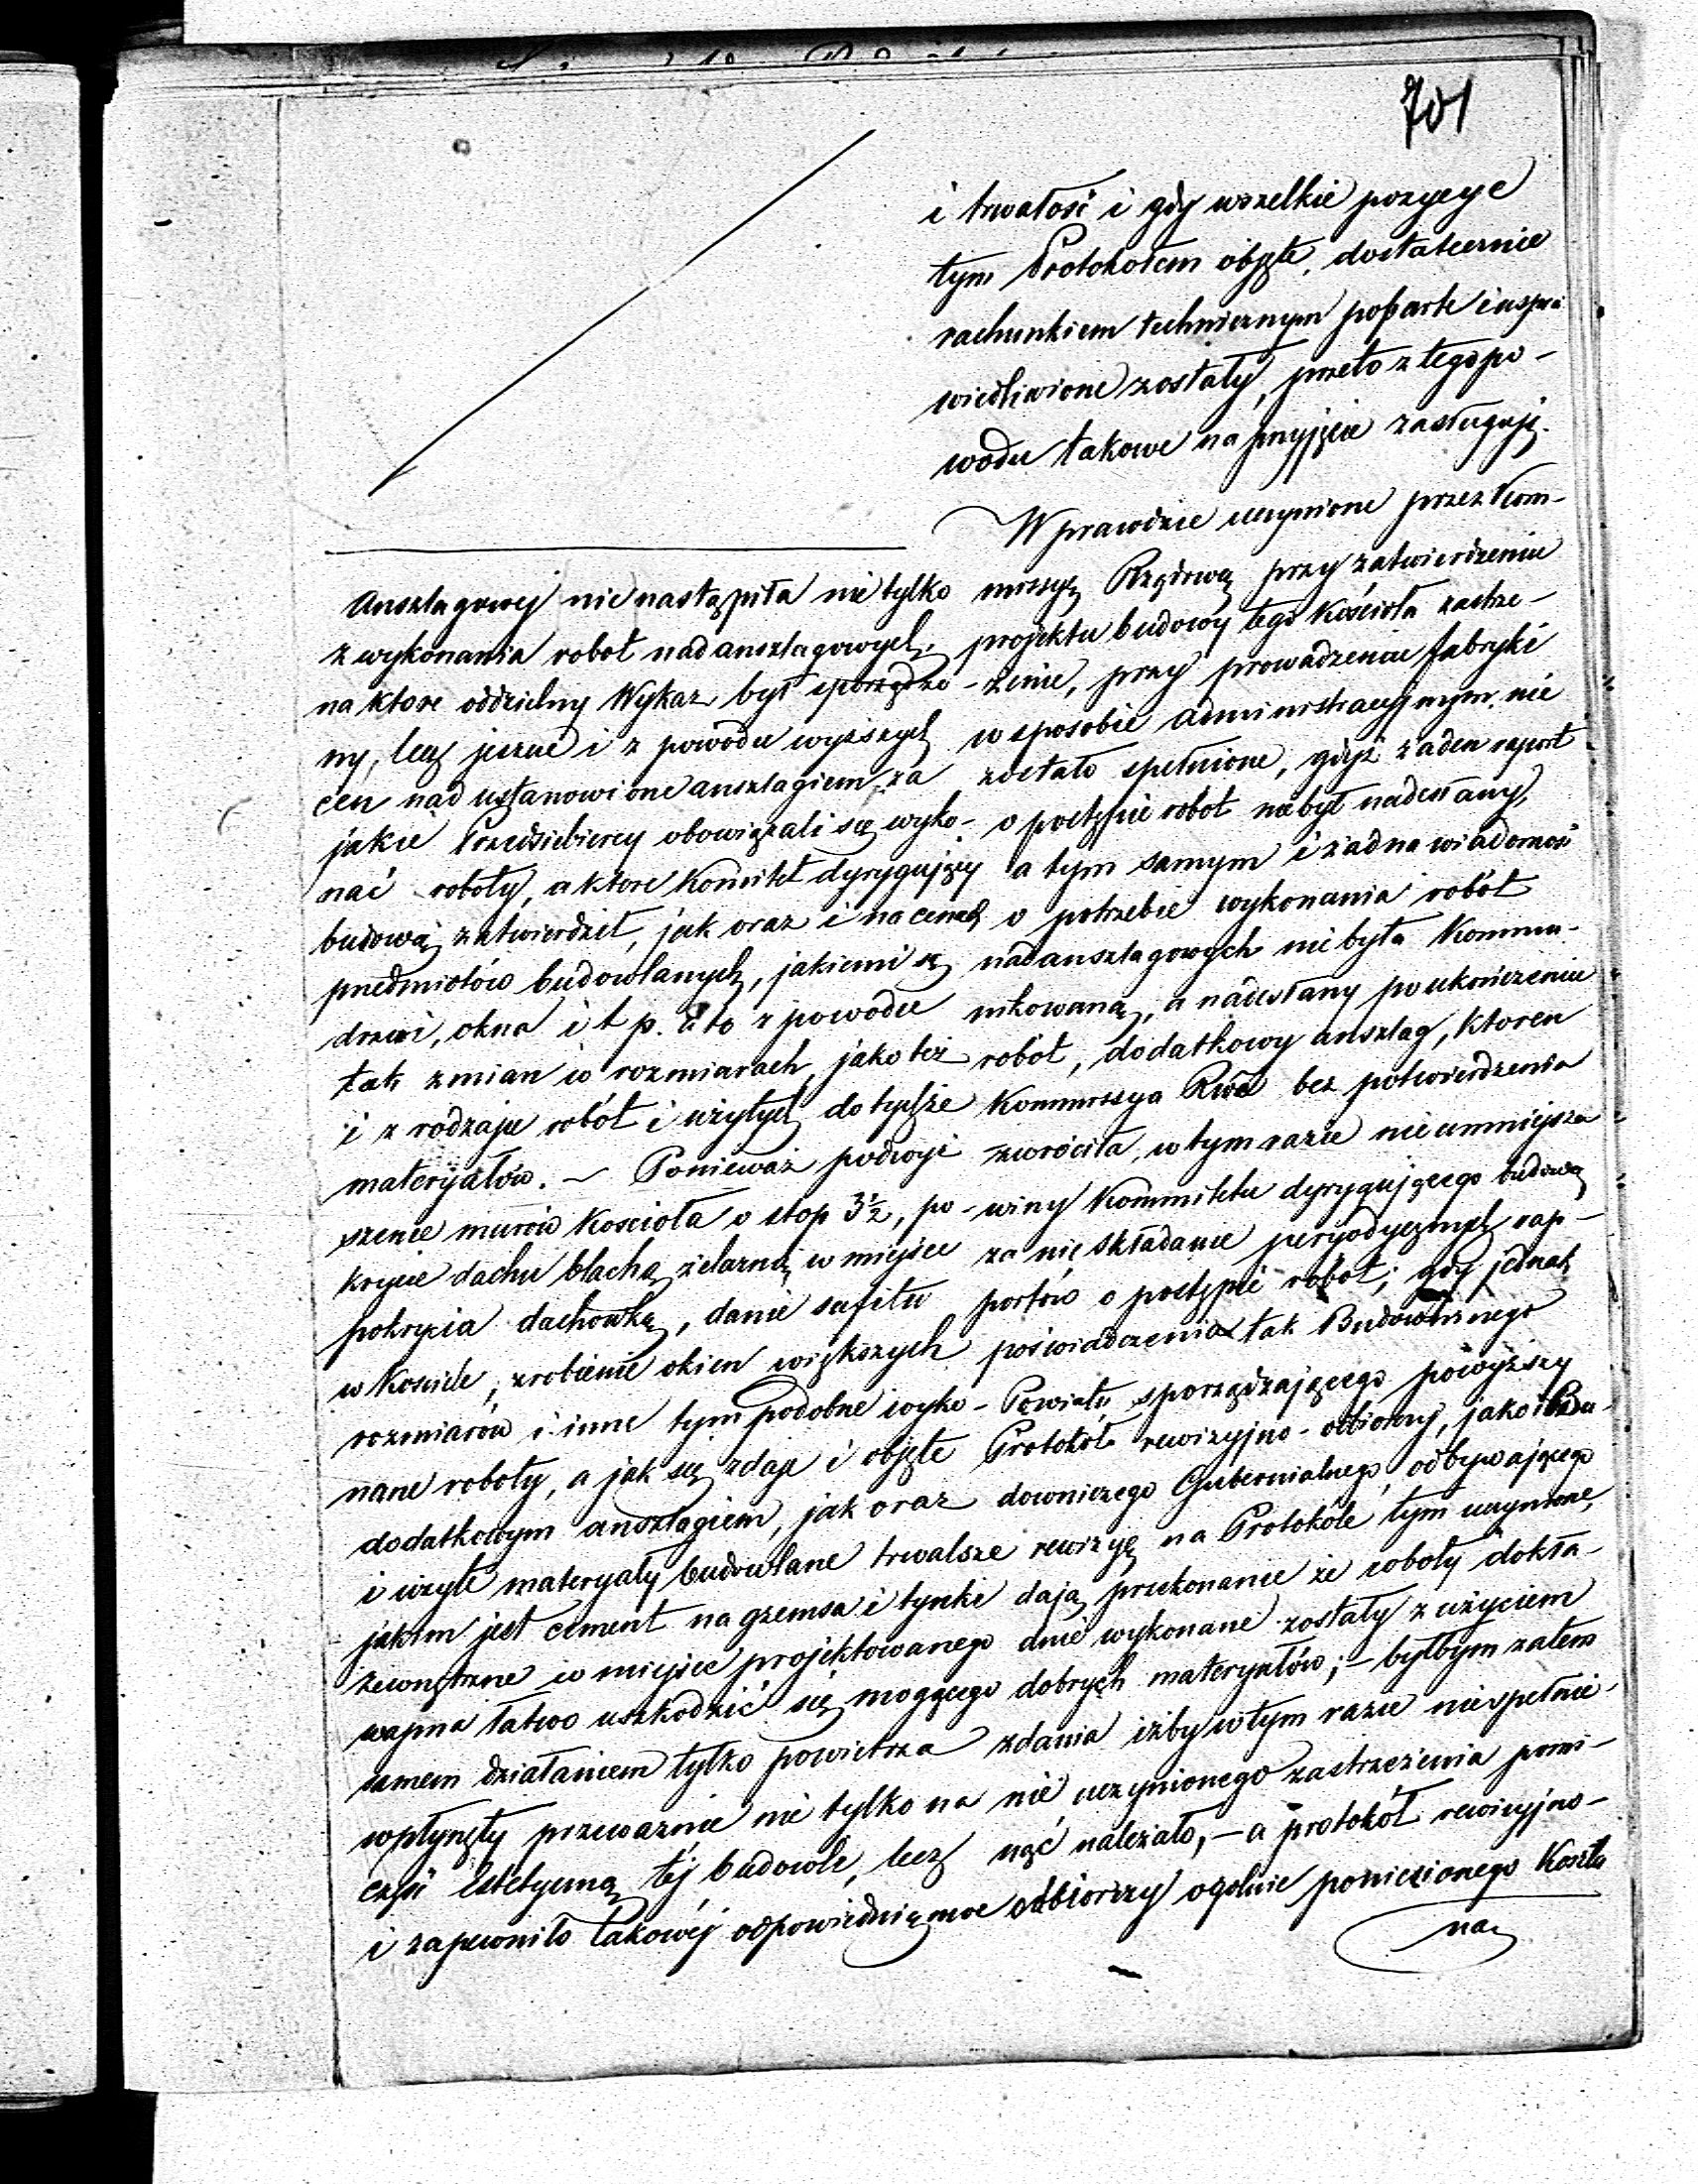 701
i trwałość i gdy wszelkie pozycye
tym Protokołem objęte, dostatecznie
rachunkiem technicznym poparte i uspra
wiedliwione zostały, przeto z tego po-
wodu takowe na przyjęcie zasługują.
Wprawdzie uczynione przez Kom-
missyą Rządową przy zatwierdzeniu
projektu budowy tego Kościoła zastrze-
żenie, przy prowadzeniu fabryki
w sposobie administracyjnym, nie
zostało spełnione, gdyż żaden raport
o postępie robót nie był nadesłany,
a tym samym i żadna wiadomość
o potrzebie wykonania robót
nadanszlagowych nie była Kommu-
nikowaną, a nadesłany po ukończeniu
robót, dodatkowy anszlag, ktoren
Kommissya Rwa bez potwierdzenia
zwróciła, w tym razie nie umniejsza
winy Kommitetu dyrygującego budową
za nie składanie peryodycznych rap-
portów o postępie robót; gdy jednak
poświadczenia tak Budowniczego
Powiatu sporządzającego powyższy
Protokół rewizyjno-odbiorczy, jako i Bu-
downiczego Gubernialnego, odbywającego
rewizyę na Protokole tym uczynione,
dają przekonanie że roboty dokła-
dnie wykonane zostały z użyciem
dobrych materyałów; – byłbym zatem
zdania iżby w tym razie niespełnie-
nie uczynionego zastrzeżenia pomi-
nąć należało, – a protokół rewizyjno-
odbiorczy ogólnie poniesionego Kosztu
na
Anszlagowej nie nastąpiła nie tylko
z wykonania robot nadanszlagowych,
na ktore oddzielny Wykaz był sporządzo-
ny, lecz jeszcze i z powodu wyższych
cen nad ustanowione anszlagiem za
jakie Przedsiebiercy obowiązali się wyko-
nać roboty, a ktore Komitet dyrygujący
budową zatwierdził, jak oraz i na cenach
przedmiotów budowlanych, jakiemi są
drzwi, okna i t p. a to z powodu
tak zmian w rozmiarach, jako też
i z rodzaju robót i użytych do tychże
materyałów. – Ponieważ podwyż
szenie murów Koscioła o stop 3½, po-
krycie dachu blachą żelazną w miejsce
pokrycia dachowką, danie sufitu
w Kosciele, zrobienie okien większych
rozmiarów i inne tym podobne wyko-
nane roboty, a jak się zdaje i objęte
dodatkowym anszlagiem, jak oraz
i użyte materyały budowlane trwalsze
jakim jest cement na gzemsa i tynki
zewnętrzne w miejsce projektowanego
wapna łatwo uszkodzić się mogącego
samem działaniem tylko powietrza
wpłynęły przeważnie nie tylko na
część estetyczną tej budowli, lecz
i zapewniło takowéj odpowiednią moc